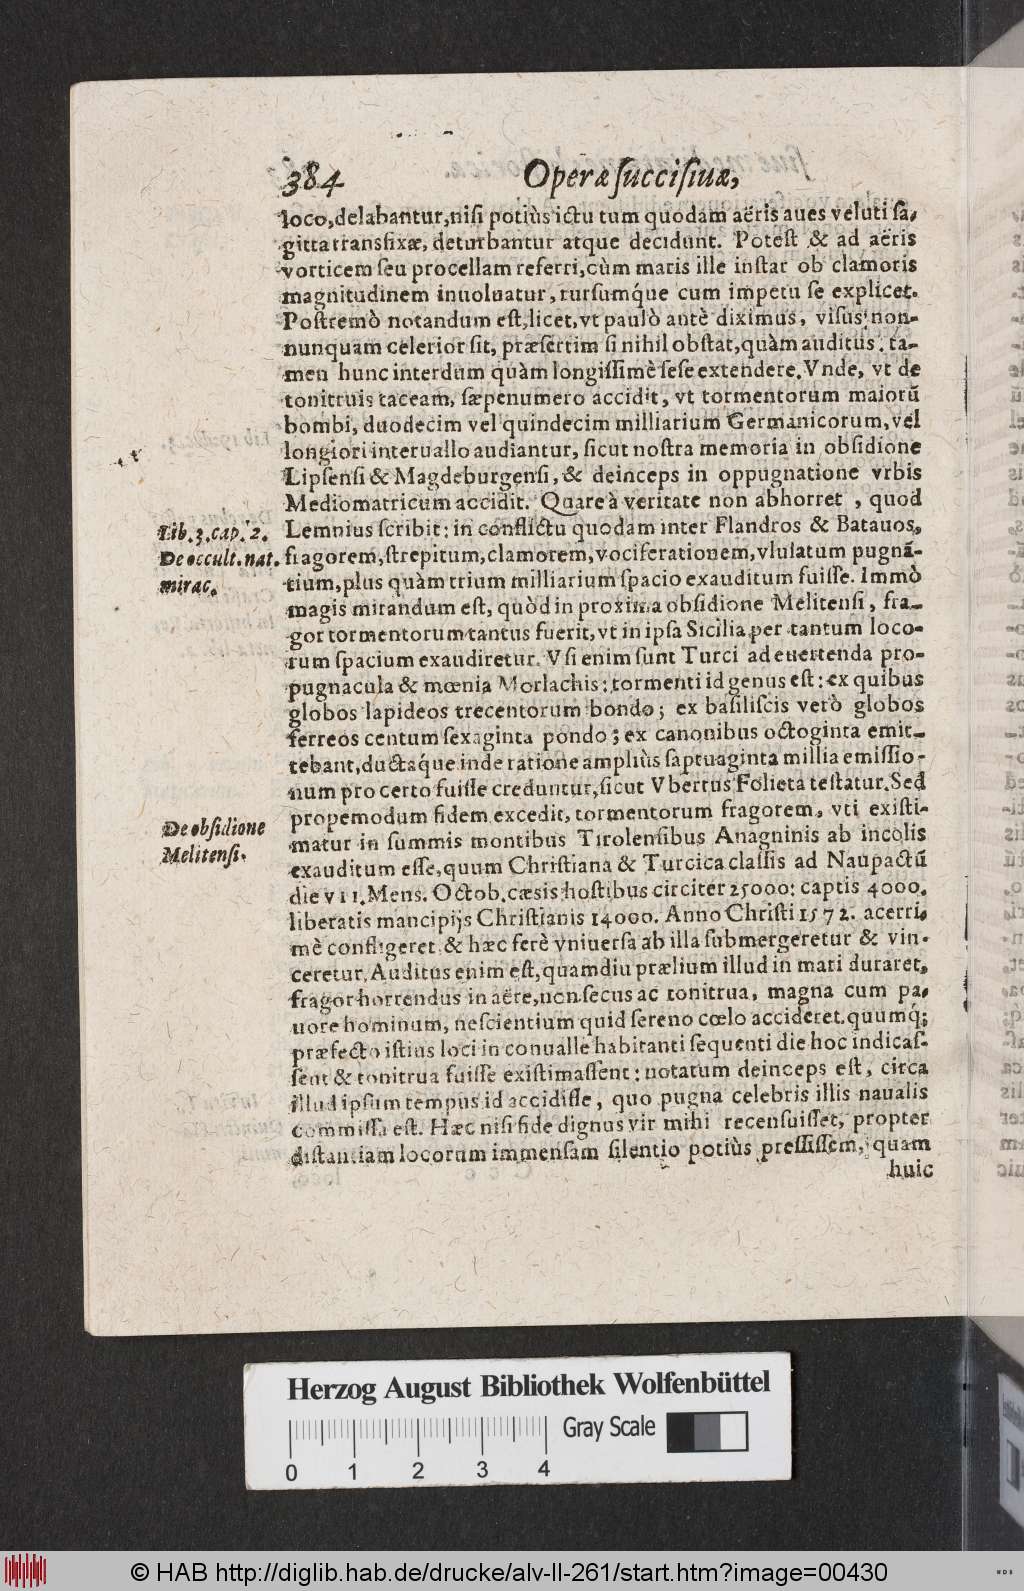 384 Operæ ſucciſiuæ,
loco, delabantur, niſi potiùs ictu tum quodam aëris aues veluti ſa-
gitta transfixæ, deturbantur atque decidunt. Poteſt & ad aëris
vorticem ſeu procellam referri, cùm maris ille inſtar ob clamoris
magnitudinem inuoluatur, rurſumq́ue cum impetu ſe explicet.
Poſtremò notandum eſt, licet, vt paulò antè diximus, viſus non-
nunquam celerior ſit, præſertim ſi nihil obſtat, quàm auditus: ta-
men hunc interdum quàm longiſſimè ſeſe extendere. Vnde, vt de
tonitruis taceam, ſæpenumero accidit, vt tormentorum maiorū
bombi, duodecim vel quindecim milliarium Germanicorum, vel
longiori interuallo audiantur, ſicut noſtra memoria in obſidione
Lipſenſi & Magdeburgenſi, & deinceps in oppugnatione vrbis
Mediomatricum accidit. Quare à veritate non abhorret, quod
Lib. 3. cap. 2.
De occult. nat.
mirac.
Lemnius ſcribit: in conflictu quodam inter Flandros & Batauos,
fragorem, ſtrepitum, clamorem, vociferationem, vlulatum pugnā-
tium, plus quàm trium milliarium ſpacio exauditum fuiſſe. Immò
magis mirandum eſt, quòd in proxima obſidione Melitenſi, fra-
gor tormentorum tantus fuerit, vt in ipſa Sicilia per tantum loco-
rum ſpacium exaudiretur. Vſi enim ſunt Turci ad euertenda pro-
pugnacula & mœnia Morlachis: tormenti id genus eſt: ex quibus
globos lapideos trecentorum pondo; ex baſiliſcis verò globos
ferreos centum ſexaginta pondo; ex canonibus octoginta emit-
tebant, ductaque inde ratione ampliùs ſaptuaginta millia emiſſio-
num pro certo fuiſſe creduntur, ſicut Vbertus Folieta teſtatur. Sed
De obſidione
Melitenſi.
propemodum fidem excedit, tormentorum fragorem, vti exiſti-
matur in ſummis montibus Tirolenſibus Anagninis ab incolis
exauditum eſſe, quum Chriſtiana & Turcica claſſis ad Naupactū
die VII. Mens. Octob. cæsis hoſtibus circiter 25000: captis 4000.
liberatis mancipijs Chriſtianis 14000. Anno Chriſti 1572. acerri-
mè confligeret & hæc ferè vniuerſa ab illa ſubmergeretur & vin-
ceretur. Auditus enim eſt, quamdiu prælium illud in mari duraret,
fragor horrendus in aëre, non ſecus ac tonitrua, magna cum pa-
uore hominum, neſcientium quid ſereno cœlo accideret. quumq́;
præfecto iſtius loci in conualle habitanti ſequenti die hoc indicaſ-
ſent & tonitrua fuiſſe exiſtimaſſent: notatum deinceps eſt, circa
illud ipſum tempus id accidiſſe, quo pugna celebris illis naualis
commiſſa eſt. Hæc niſi fide dignus vir mihi recenſuiſſet, propter
diſtantiam locorum immenſam ſilentio potiùs preſſiſſem, quam
huic
Herzog August Bibliothek Wolfenbüttel
Gray Scale
0 1 2 3 4
© HAB http://diglib.hab.de/drucke/alv-ll-261/start.htm?image=00430